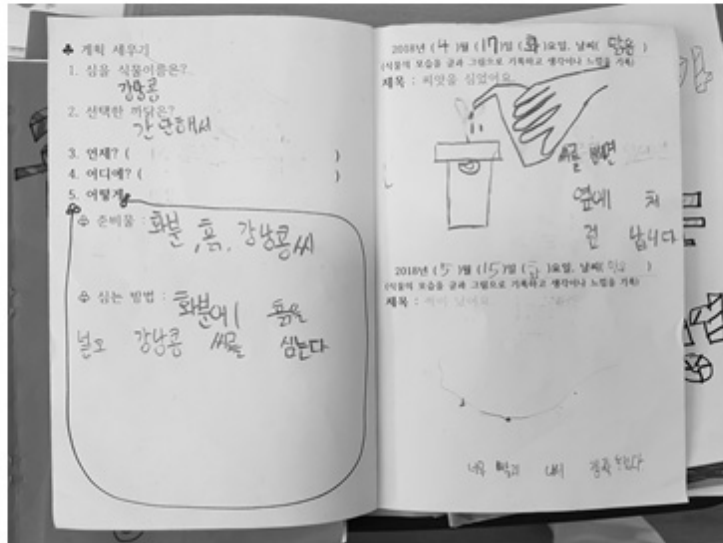 ♣ 계획 세우기
1. 심을 식물이름은?
강낭콩
2. 선택한 까닭은?
간단해서
3. 언제? ( )
4. 어디에? ( )
5. 어떻게
♧ 준비물 : 화분, 흙, 강낭콩씨
♧ 심는 방법 : 화분에 흙을
널고 강낭콩 씨를 심는다
2018년 (4)월 (17)일 (화)요일, 날씨( 맑음 )
(식물의 모습을 글과 그림으로 기록하고 생각이나 느낌을 기록)
제목 : 씨앗을 심었어요
씨를
옆에 처
럼 납니다
2018년 (5)월 (15)일 ( )요일, 날씨( )
(식물의 모습을 글과 그림으로 기록하고 생각이나 느낌을 기록)
제목 : 싹이 났어요
너무